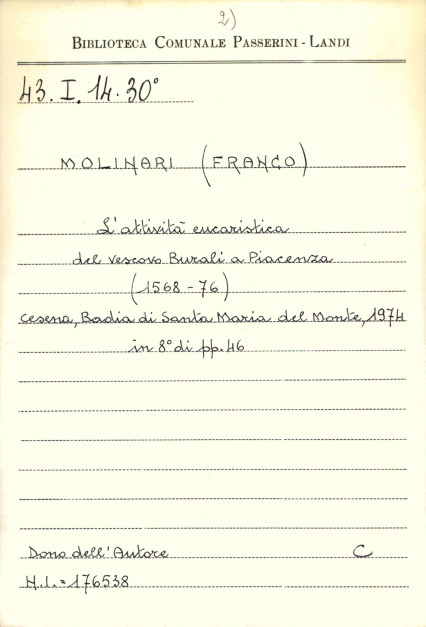 2)
BIBLIOTECA COMUNALE PASSERINI - LANDI
43. I. 14. 30°
MOLINARI (FRANCO)
L'attività eucaristica
del vescovo Burali a Piacenza
(1568 - 76)
cesena, Badia di Santa Maria del Monte, 1974
in 8° di pp. 46
Dono dell'Autore C
N.I. = 176538